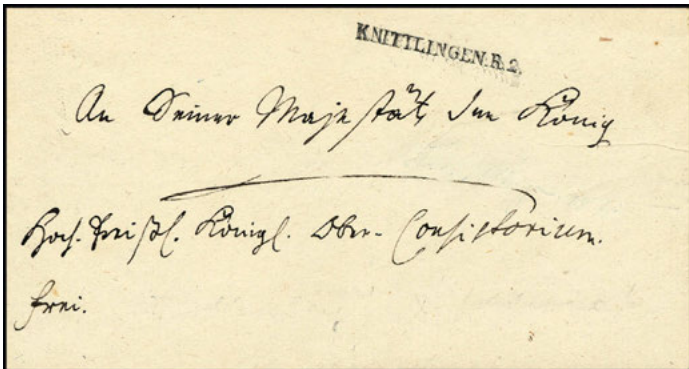 KNITTLINGEN.R.2.
An Seiner Majestät den König
Hoch-preißl. Königl. Ober-Consistorium.
frei.